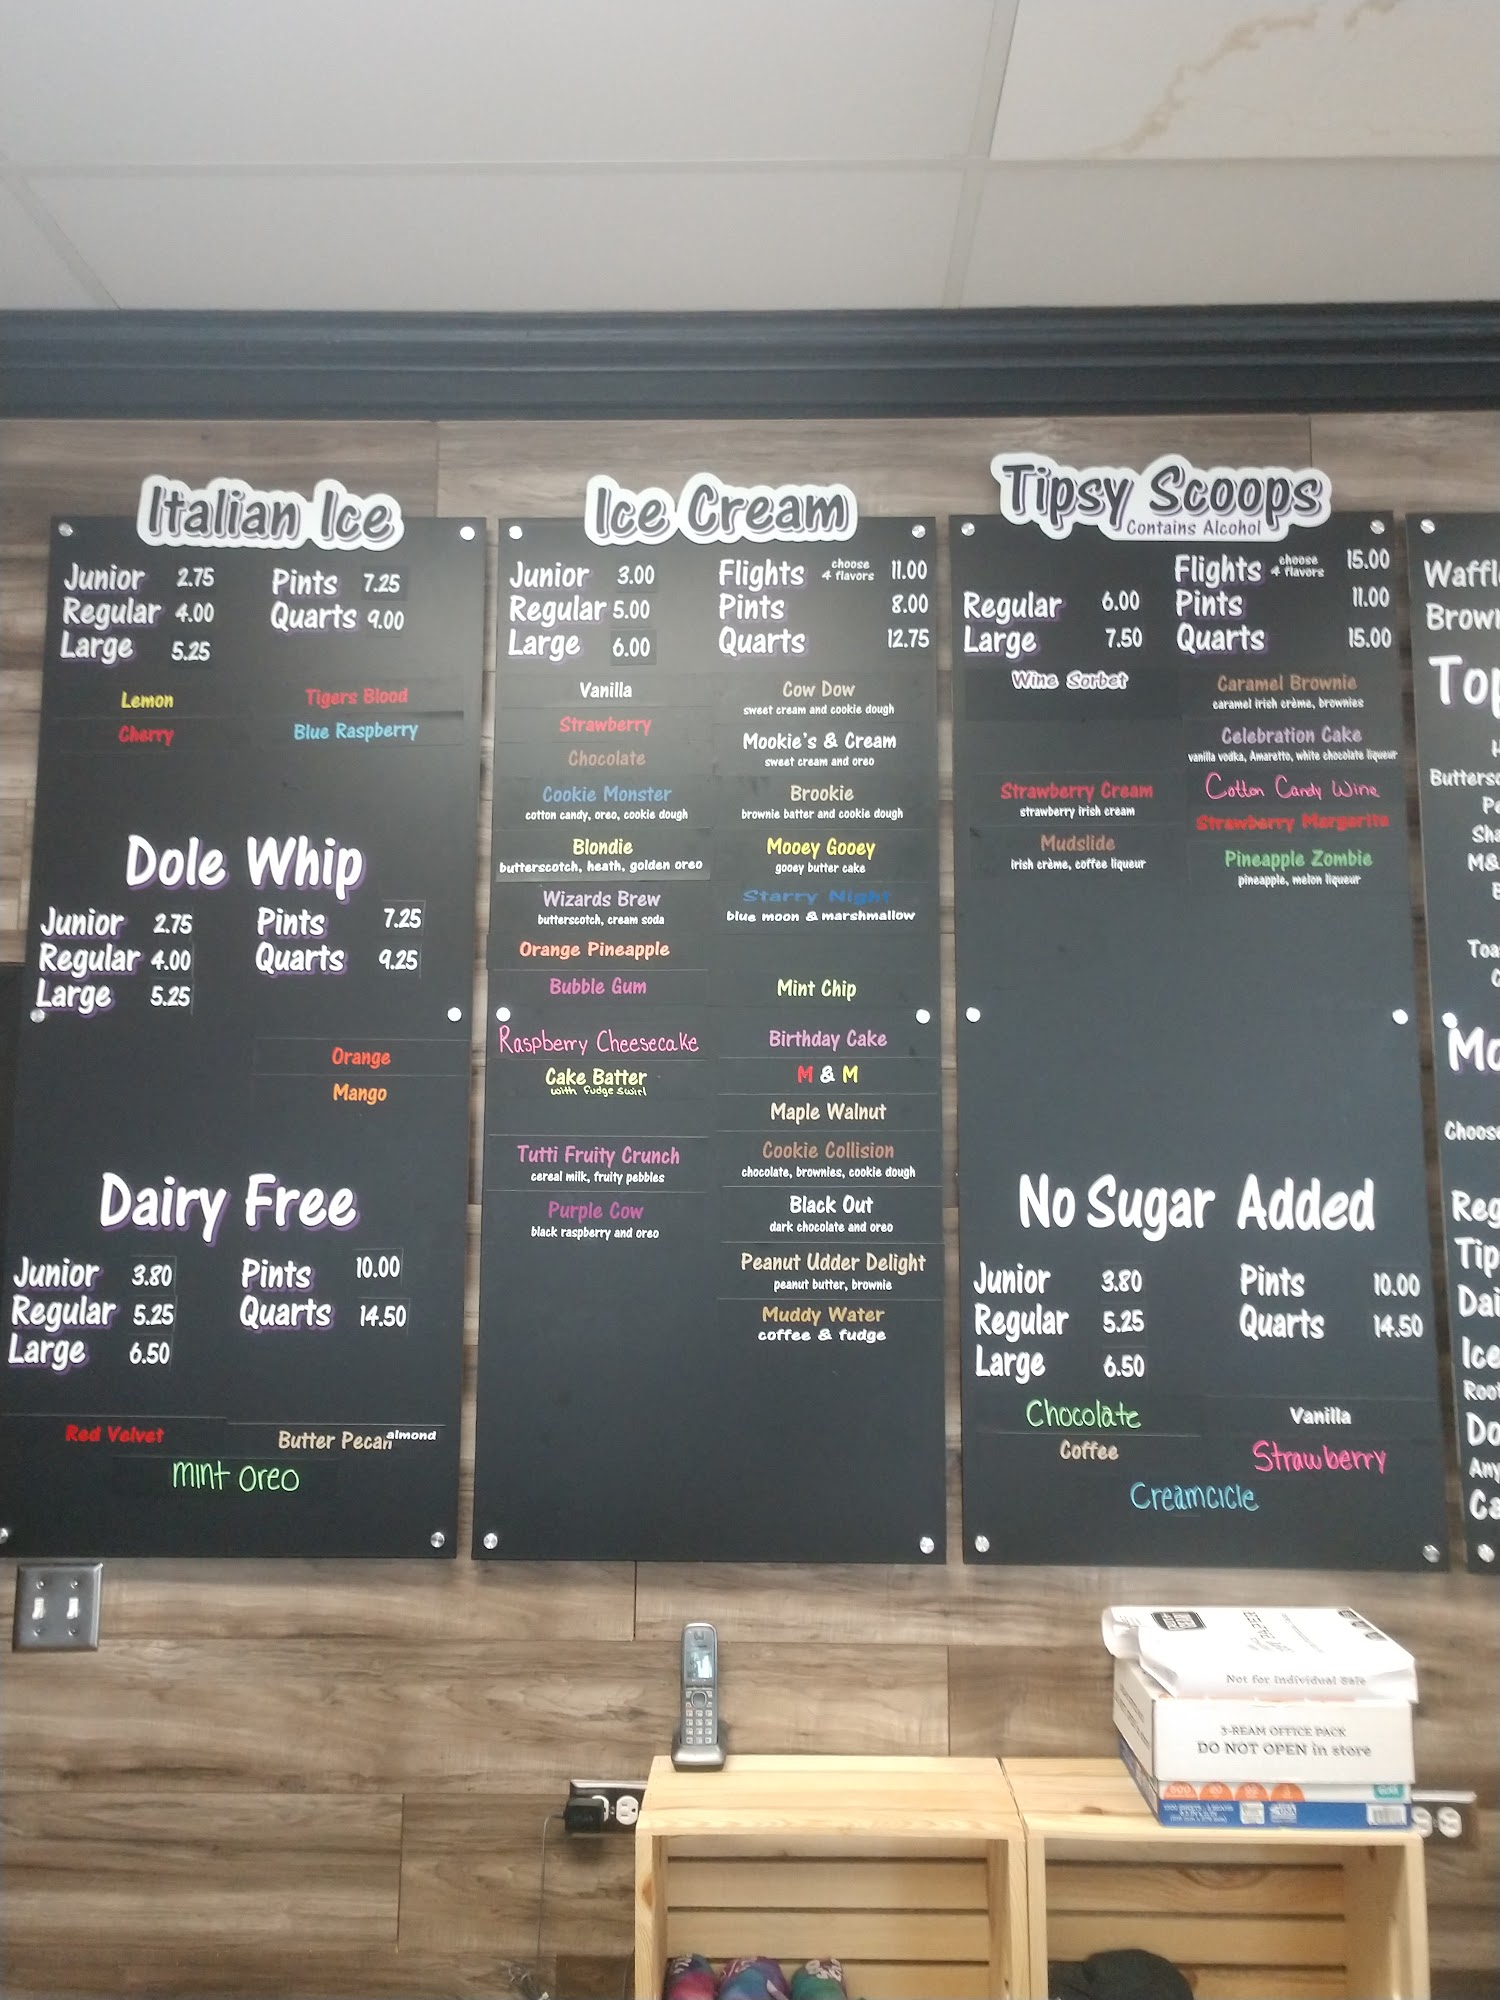 Italian Ice
Junior 2.75 Pints 7.25
Regular 4.00 Quarts 9.00
Large 5.25
Lemon Tigers Blood
Cherry Blue Raspberry
Dole Whip
Junior 2.75 Pints 7.25
Regular 4.00 Quarts 9.25
Large 5.25
Orange
Mango
Dairy Free
Junior 3.80 Pints 10.00
Regular 5.25 Quarts 14.50
Large 6.50
Red Velvet Butter Pecan almond
mint oreo
Ice Cream
Junior 3.00 Flights choose 4 flavors 11.00
Regular 5.00 Pints 8.00
Large 6.00 Quarts 12.75
Vanilla
Strawberry
Chocolate
Cookie Monster
cotton candy, oreo, cookie dough
Blondie
butterscotch, heath, golden oreo
Wizards Brew
butterscotch, cream soda
Orange Pineapple
Bubble Gum
Raspberry Cheesecake
Cake Batter
with fudge swirl
Tutti Fruity Crunch
cereal milk, fruity pebbles
Purple Cow
black raspberry and oreo
Cow Dow
sweet cream and cookie dough
Mookie's & Cream
sweet cream and oreo
Brookie
brownie batter and cookie dough
Mooey Gooey
gooey butter cake
Starry Night
blue moon & marshmallow
Mint Chip
Birthday Cake
M & M
Maple Walnut
Cookie Collision
chocolate, brownies, cookie dough
Black Out
dark chocolate and oreo
Peanut Udder Delight
peanut butter, brownie
Muddy Water
coffee & fudge
Tipsy Scoops
Contains Alcohol
Flights choose 4 flavors 15.00
Regular 6.00 Pints 11.00
Large 7.50 Quarts 15.00
Wine Sorbet
Strawberry Cream
strawberry irish cream
Mudslide
irish crème, coffee liqueur
Caramel Brownie
caramel irish crème, brownies
Celebration Cake
vanilla vodka, Amaretto, white chocolate liqueur
Cotton Candy Wine
Strawberry Margarita
Pineapple Zombie
pineapple, melon liqueur
No Sugar Added
Junior 3.80 Pints 10.00
Regular 5.25 Quarts 14.50
Large 6.50
Chocolate Vanilla
Coffee Strawberry
Creamcicle
Waffl
Brown
Top
Buttersc
Pe
Sha
M&
Toa
Mo
Choose
Reg
Tip
Dai
Ice
Root
Do
Any
Ca
Not for Individual Sale
3-REAM OFFICE PACK
DO NOT OPEN in store